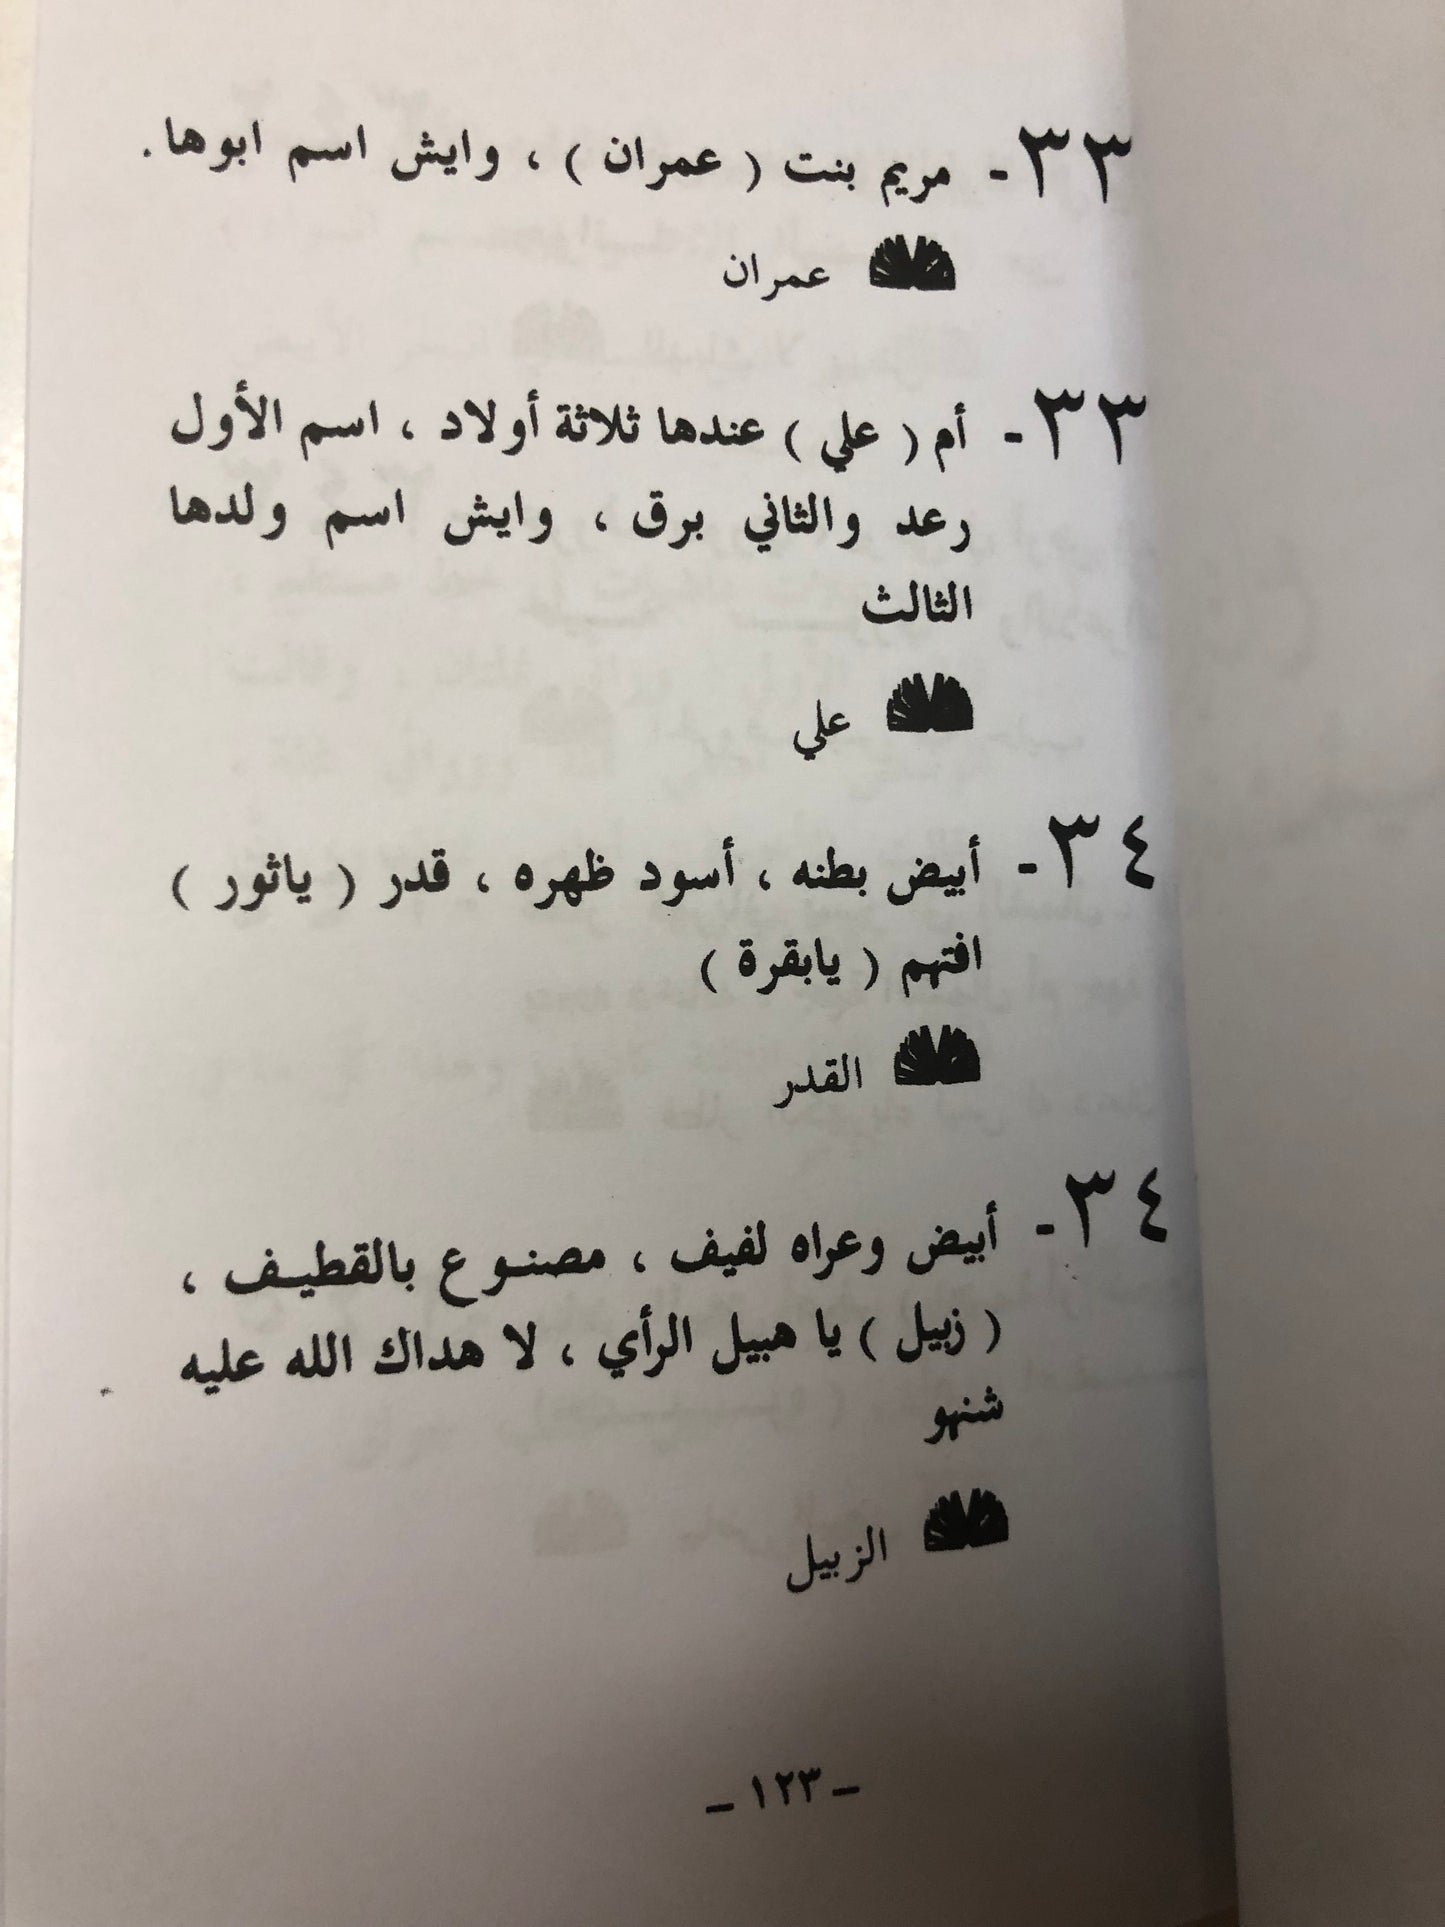 ٣٣- مريم بنت ( عمران ) ، وايش اسم ابوها .
عمران
٣٣- أم ( علي ) عندها ثلاثة أولاد ، اسم الأول
رعد والثاني برق ، وايش اسم ولدها
الثالث
علي
٣٤- أبيض بطنه ، أسود ظهره ، قدر ( ياثور )
افتهم ( يابقرة )
القدر
٣٤- أبيض وعراه لفيف ، مصنوع بالقطيف ،
( زبيل ) يا هبيل الرأي ، لا هداك الله عليه
شنهو
الزبيل
ـ ١٢٣ ـ